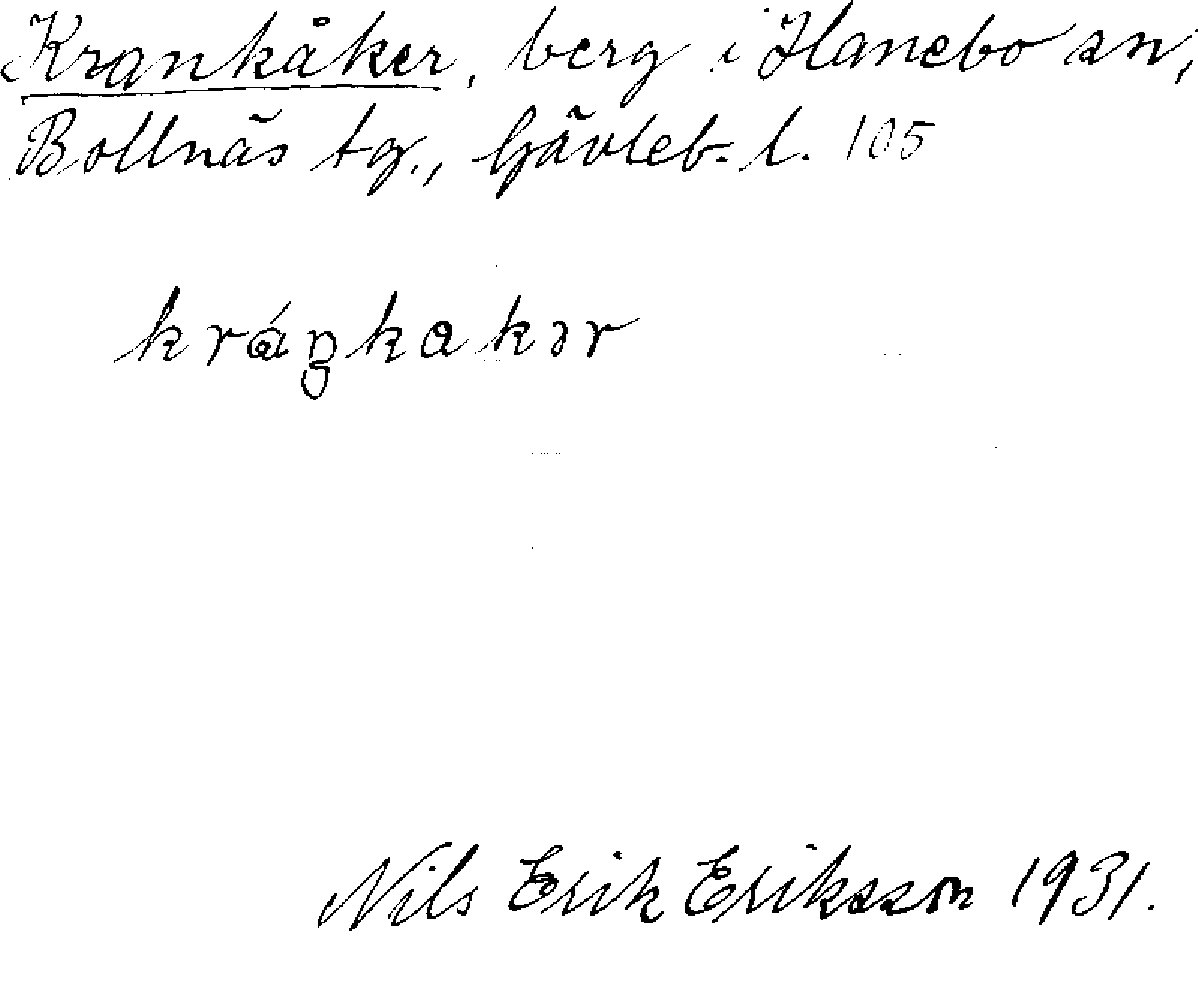 Krankåker, berg i Hanebo sn,
Bollnäs tg., Gävleb. l. 105
kráŋkakər
Nils Erik Eriksson 1931.